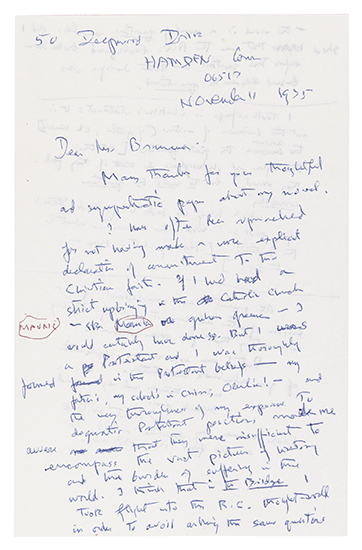 50 Deepwood Drive
HAMDEN Conn
06517
November 11 1975
Dear Mrs Brunauer:
Many thanks for your thoughtful
and sympathetic paper about my novel.
I have often been reproached
for not having made a more explicit
declaration of commitment to the
Christian faith. If I had had a
strict upbringing in the Catholic Church
MAURIC — like Mauriac or graham greene — I
would certainly have done so. But I was
a Protestant and I was thoroughly
formed in the Protestant beliefs — my
father's, my school's in China, Oberlin! — and
the very thoroughness of my exposure to
dogmatic Protestant positions made me
aware that they were insufficient to
encompass the vast picture of history
and the burden of suffering in the
world. I think that in Bridge I
took flight into the R.C. thought-world
in order to avoid asking the same questions